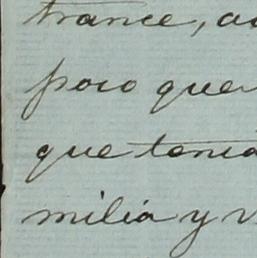 trance, ac
poco que
que tenia
milia y v